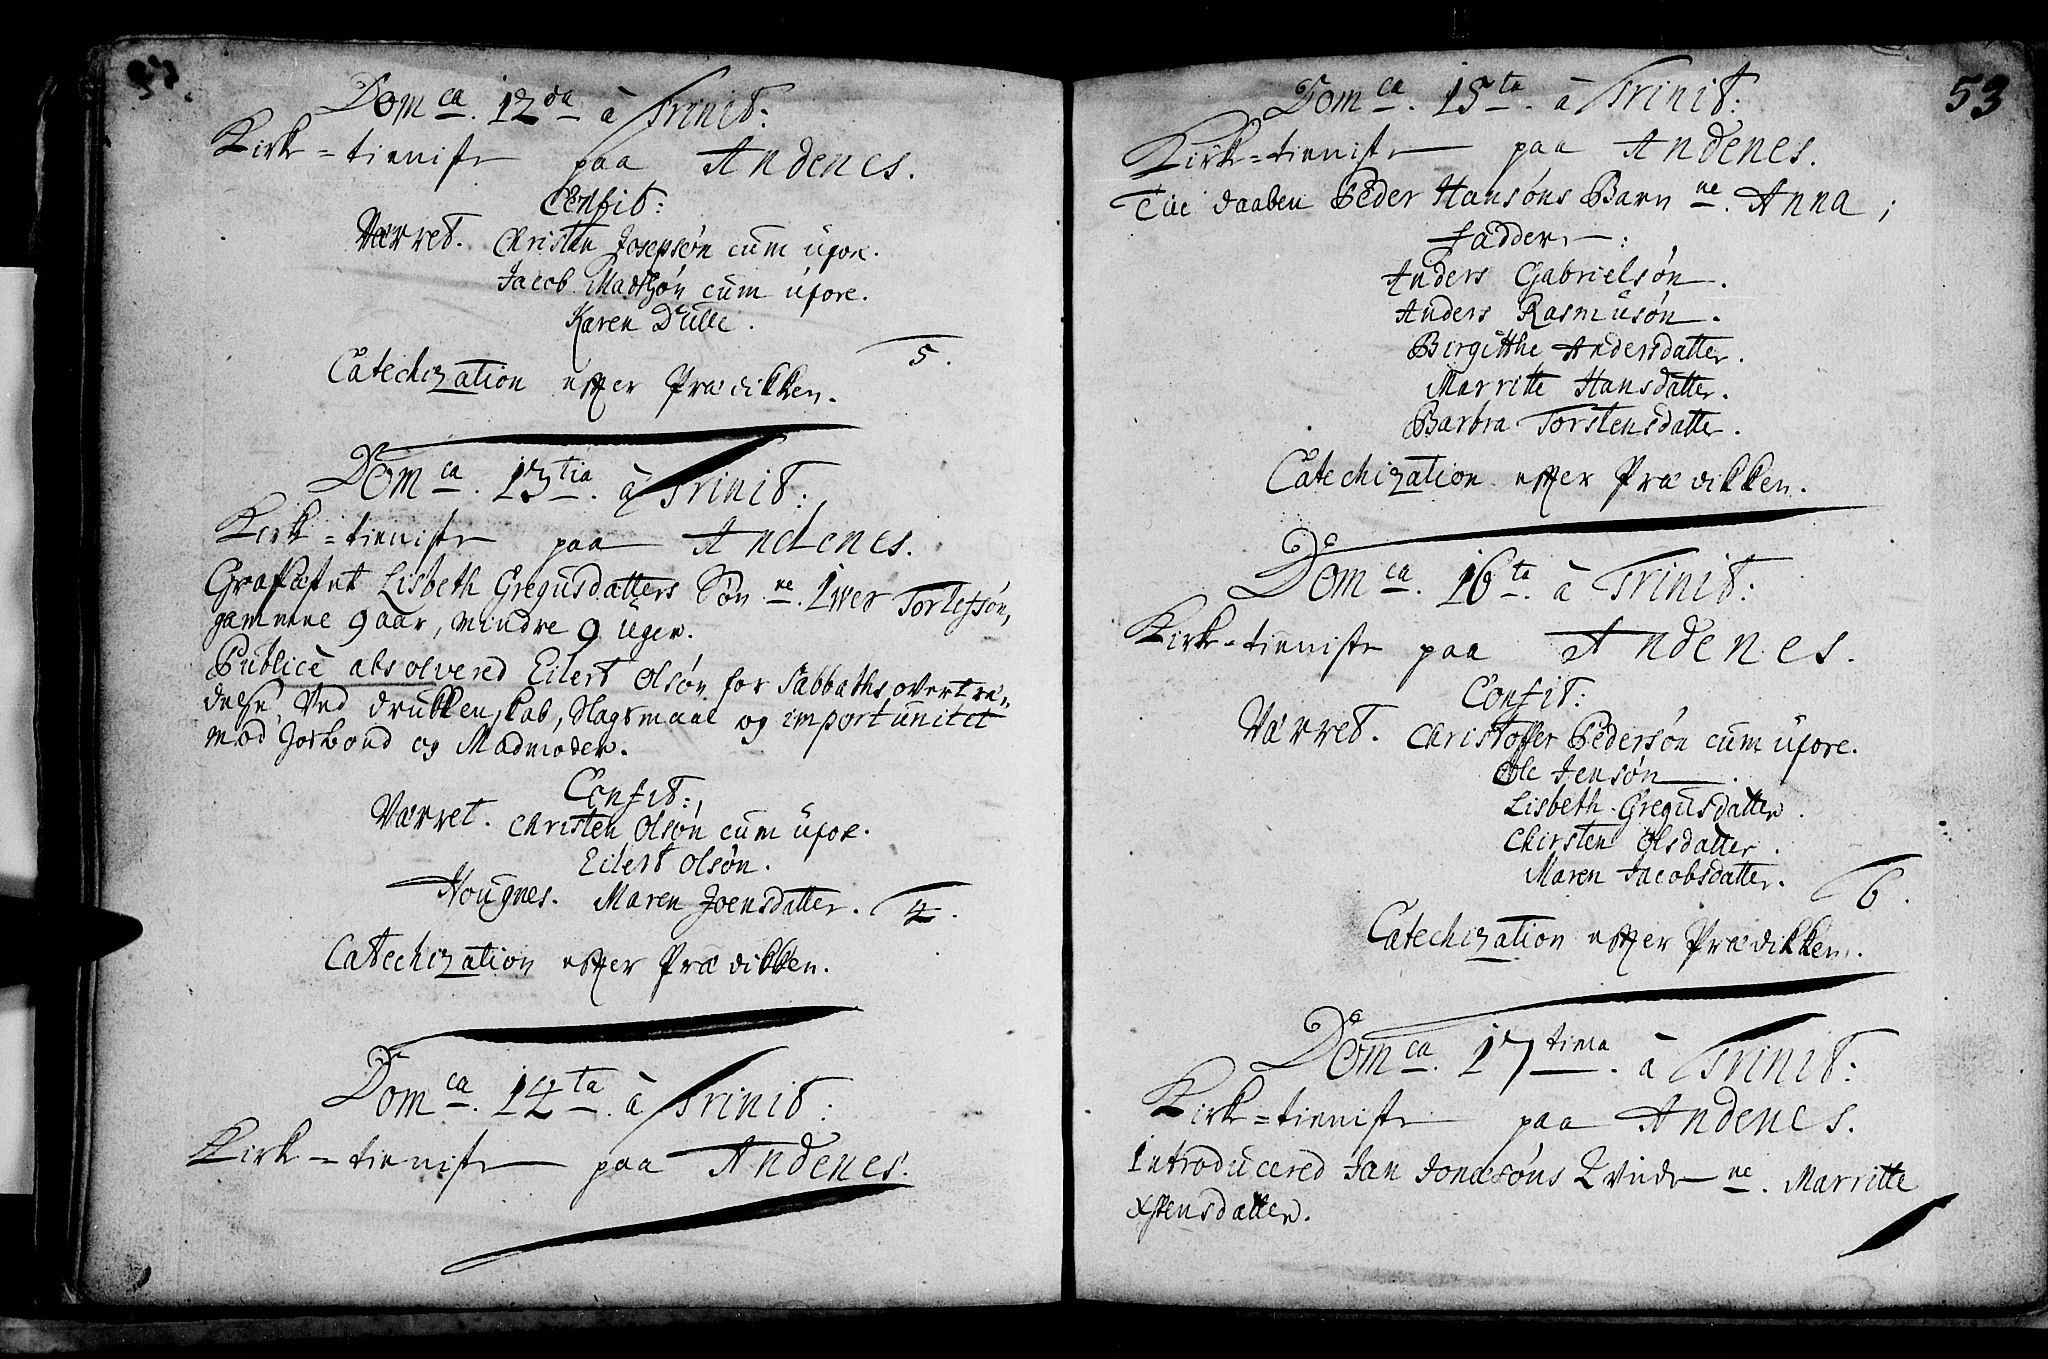 Dom ca. 12 da à Trinit:
Kirke=tieniste paa Andenes.
Confit:
Værret. Christen Josepsøn cum uxore.
Jacob Madtzøn cum uxore.
Karen Dulle.
5.
Catechization effter Prædikken.
Dom ca. 13 tia. à Trinit:
Kirke=tieniste paa Andenes.
Grafæstet Lisbeth Gregusdatters Søn ne. Iver Torlefsøn,
gammel 9 aar, mindre 9 uger.
Publicè absolvered Eilert Olsøn for Sabbaths overtræ-
delse, Ved drukkenskab, slagsmaal og importunitet
mod Hosbond og Madmoder.
Confit:
Værret. Christen Olsøn, cum uxore.
Eilert Olsøn.
Hougnes. Maren Joensdatter. 4.
Catechization effter Prædikken.
Dom ca. 14 ta. à Trinit:
Kirke=tieniste paa Andenes.
53
Dom ca. 15 ta. à Trinit:
Kirke=tieniste paa Andenes.
Til daaben Peder Hansøns Barn ne. Anna;
Faddere:
Anders Gabrielsøn.
Anders Rasmusøn.
Birgitthe Andersdatter.
Marritte Hansdatter.
Barbra Torstensdatter.
Catechization effter Prædikken.
Dom ca. 16 ta. à Trinit:
Kirke=tieniste paa Andenes.
Confit:
Værret. Christoffer Pedersøn cum uxore.
Ole Jensøn.
Lisbeth Gregusdatter.
Chirsten Olsdatter.
Maren Jacobsdatter. 6.
Catechization effter Prædikken.
Dom ca. 17 tima. à Trinit:
Kirke=tieniste paa Andenes.
Introducered Jan Jonæsøns Qvinde ne. Marritte
Xstensdatter.